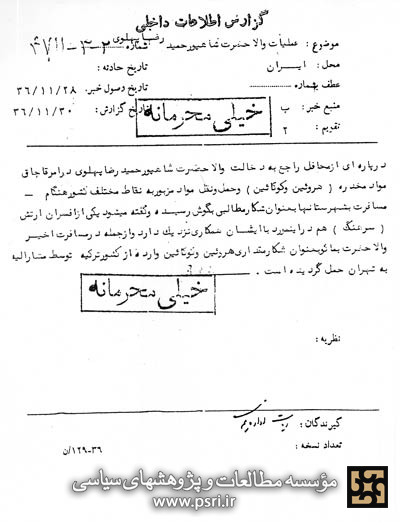 گزارش اطلاعات داخلی
موضوع : عملیات والا حضرت شاهپور حمید رضا پهلوی شماره
محل : ایران تاریخ حادثه :
عطف بشماره تاریخ وصول خبر : ۳۶/۱۱/۲۸
منبع خبر : ب تاریخ گزارش : ۳۶/۱۱/۳۰
تقویم : ۲
خیلی محرمانه
درپاره ای ازمحافل راجع به دخالت والا حضرت شاهپور حمید رضا پهلوی درامر قاچاق
مواد مخدره ( هروئین وکوکائین ) وحمل ونقل مواد مزبور به نقاط مختلف کشور هنگام
مسافرت بشهرستانها بعنوان شکار مطالبی بگوش رسیده وگفته میشود یکی ازافسران ارتش
( سرهنگ ) هم دراینمورد باایشان همکاری نزدیک دارد وازجمله درمسافرت اخیر
والا حضرت بماکو بعنوان شکار مقداری هروئین وکوکائین وارده از کشور ترکیه توسط مشارالیه
به تهران حمل گردیده است .
خیلی محرمانه
نظریه :
گیرندگان : ریاست اداره
تعداد نسخه :
۳۶-۱۲۹/ن
مؤسسه مطالعات و پژوهشهای سیاسی
www.psri.ir